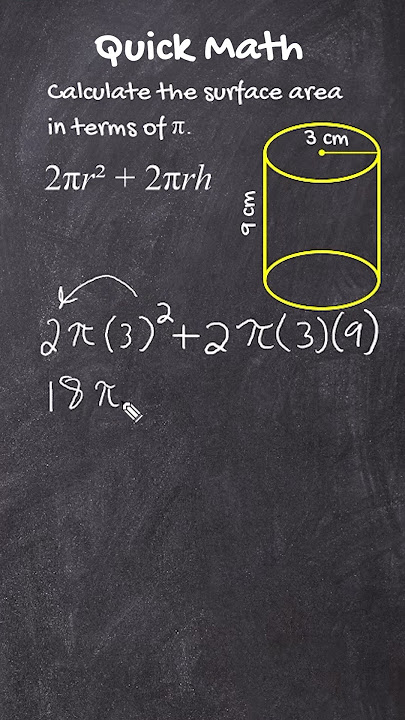 Quick Math
Calculate the surface area
in terms of π.
2πr² + 2πrh
3 cm
9 cm
2π(3)²+2π(3)(9)
18π